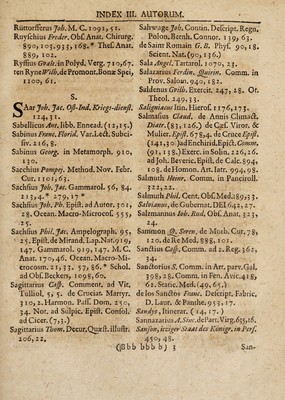 INDEX III. AUTORUM.
Rüttorfferus Joh. M. C. 1091, 51.
Ruyschius Freder. Obs. Anat. Chirurg.
890, 105. 935, 168.* Thes. Anat.
889, 102.
Ryssius Gvale. in Polyd. Verg. 710, 67.
ten Ryne Wilh. de Promont. Bonæ Spei,
1100, 61.
S.
Saar Joh. Jac. Ost-Ind. Kriegs-dienst.
124, 31.
Sabellicus Ant. libb. Ennead. (12, 15.)
Sabinus Franc. Florid. Var. Lect. Subci-
siv. 216, 8.
Sabinus Georg. in Metamorph. 910,
130.
Sacchius Pompej. Method. Nov. Febr.
Cur. 1101, 63.
Sachsius Joh. Jac. Gammarol. 56, 84.
213, 4.* 279, 17*
Sachsius Joh. Ph. Epist. ad Autor. 301,
28. Ocean. Macro-Microcosf. 555,
25.
Sachsius Phil. Jac. Ampelograph. 95,
25. Epist. de Mirand. Lap. Nat. 919,
147. Gammarol. 919, 147. M. C.
Anat. 170, 46. Ocean. Macro-Mi-
crocosm. 21, 33. 57, 86.* Schol.
ad Obs. Beckers, 1098, 60.
Sagittarius Casp. Comment. ad Vit.
Tullioli, 5, 5. de Cruciat. Marryr.
310, 2. Harmon. Pass. Dom. 250,
34. Not. ad Sulpic. Epist. Consol.
ad Cicer. (7, 3.)
Sagittarius Thom. Decur. Quæst. illustr.
206, 22.
Sahwage Joh. Contin. Descript. Regn.
Polon. Bernh. Connor. 139, 63.
de Saint Romain G. B. Phys. 90, 18.
Scient. Nat. (90, 136.)
Sala Angel. Tartarol. 1070, 23.
Salazarius Ferdin. Quirin. Comm. in
Prov. Salom. 940, 182.
Saldenus Gvilh. Exercit. 247, 28. Ot.
Theol. 249, 33.
Salignacus Hierof. 1176, 173.
Salmasius Claud. de Annis Climact.
Diatr. (83, 126.) de Cæs. Viror. &
Mulier. Epist. 678, 4. de Cruce Epist.
(141, 30.) ad Enchirid. Epict. Comm.
(91, 138.) Exerc. in Solin. 226, 26.
ad Joh. Beveric. Epist. de Calc. 894,
108. de Homon. Jatr. 994, 98.
Salmuth Henr. Comm. in Panciroll.
322, 22.
Salmuth Phil. Cent. Obs. Med. 893, 3.
Salvianus, de Gubernat. DEI 643, 27.
Salzmannus Joh. Rud. Obs. Anat. 323,
24.
Sammon O. Soren. de Morb. Cur. 78,
120. de Re Med. 888, 101.
Sanctius Casp. Comm. ad 2. Reg. 362,
34.
Sanctorius S. Comm. in Art. parv. Gal.
398, 28. Comm. in Fen. Avic. 418,
61. Static. Med. (49, 65.)
de los Sanctos Franc. Descript. Fabric.
D. Laur. & Panthe. 953, 17.
Sandys, Itinerar. (14, 17.)
Sannazarius A. Sinc. de Part. Virg. 655, 16.
Sanson, itziger Staat des Königr. in Pers.
450, 48.
(βbb bbbb) 3
San-